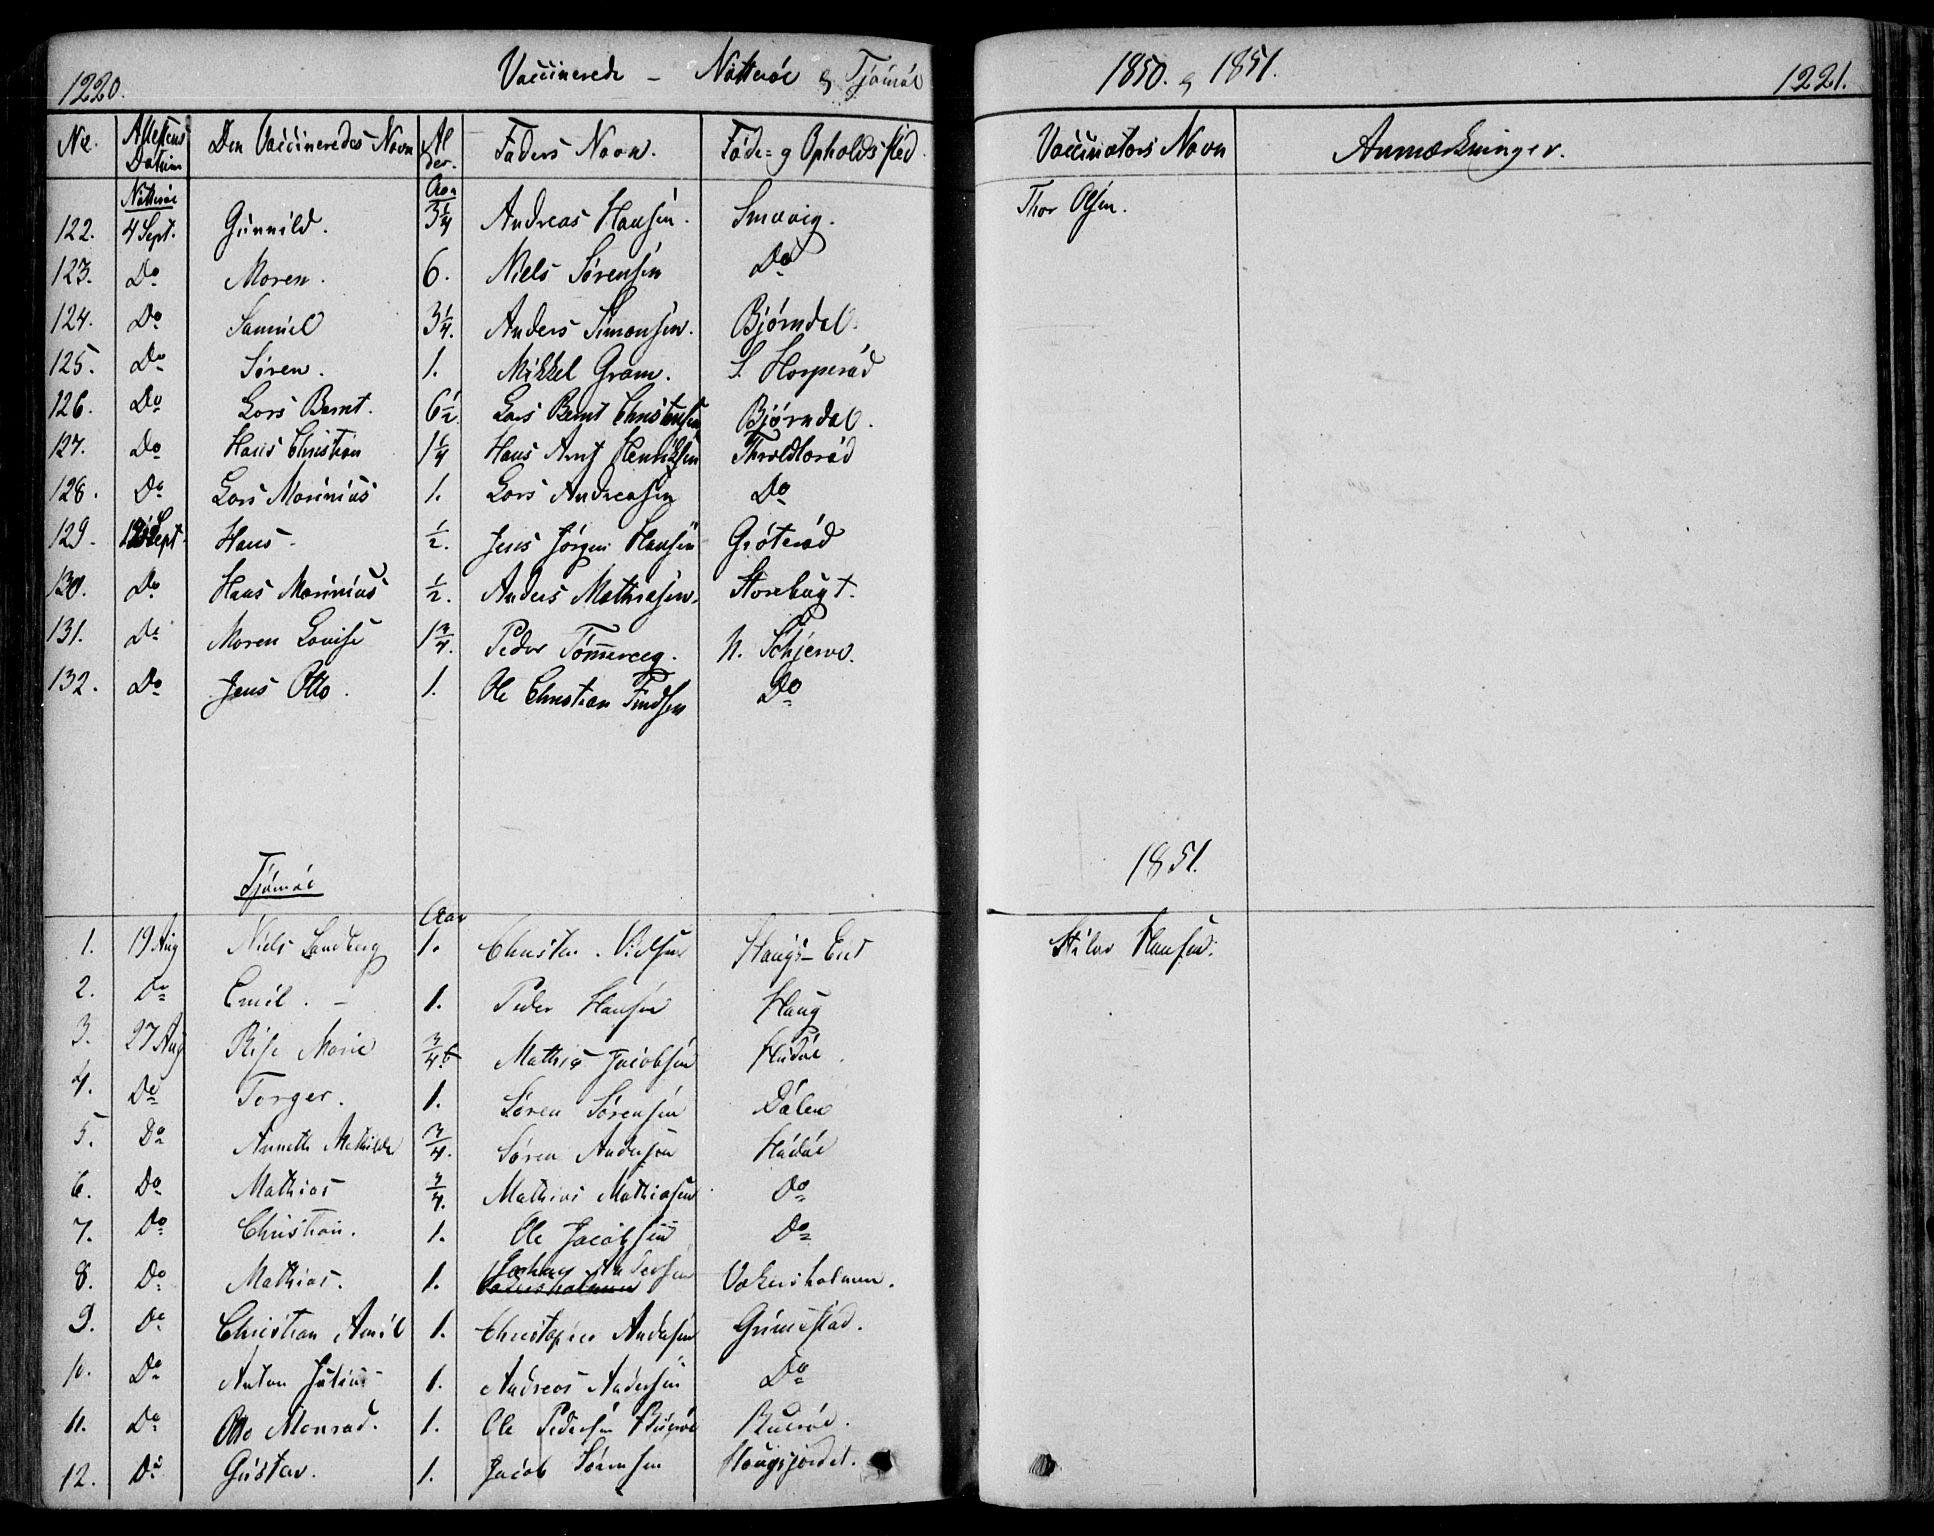 1220. Vaccinerede – Nötteröe & Tjömöe 1850. & 1851. 1221.
No. Attestens Datum Den Vaccineredes Navn Al der. Faders Navn. Føde= og Opholdssted. Vaccinators Navn Anmærkninger.
Nötteröe Aar
122. 4 Sept. Gunnild. 3¼ Andreas Hansen. Smaavig. Thor Olsen.
123. Do Maren. 6. Niels Sørensen Do
124. Do Samuel 3¼. Anders Simonsen. Bjørndal.
125. Do Søren. 1. Mikkel Gram. S. Haaperød
126. Do Lars Bernt. 6½ Lars Bernt Christensen Bjørndal.
127. Do Hans Christian 1¼ Hans Ant. Henriksen
128. Do Lars Marinius 1. Lars Andreasen Do
129. Sept. Hans. ½. Jens Jørgen Hansen Gröterød
130. Do Hans Marinius ½. Anders Mathiasen. Storebugt.
131. Do Maren Lovise 1¾. Peder Tömmereeg. N. Schjerve.
132. Do Jens Otto. 1. Ole Christian Findsen Do
Tjömöe 1851.
Aar
1. 19 Aug Niels Sandberg 1. Christen Nielsen Haugs-Eie Hansen.
2. Do Emil. – 1. Peder Hansen Haug
3. 27 Aug Marie ¾ Mathias Jacobsen Hudøe.
4. Do Torger. 1. Søren Sørensen Dalen
5. Do Annette Mathilde ¾. Søren Andersen Hudøe
6. Do Mathias ¾. Mathias Mathiasen Do
7. Do Christian. 1. Ole Jacobsen Do
8. Do Mathias. 1. Andersen Vakersholmen.
9. Do Christian Amil 1. Christopher Andersen Grimestad.
10. Do Anton Julius 1. Andreas Andersen Do
11. Do Otto Monrad. 1. Ole Pedersen Bueröe Bueröe.
12. Do Gustav. 1. Jacob Sørensen Haugsjordet.